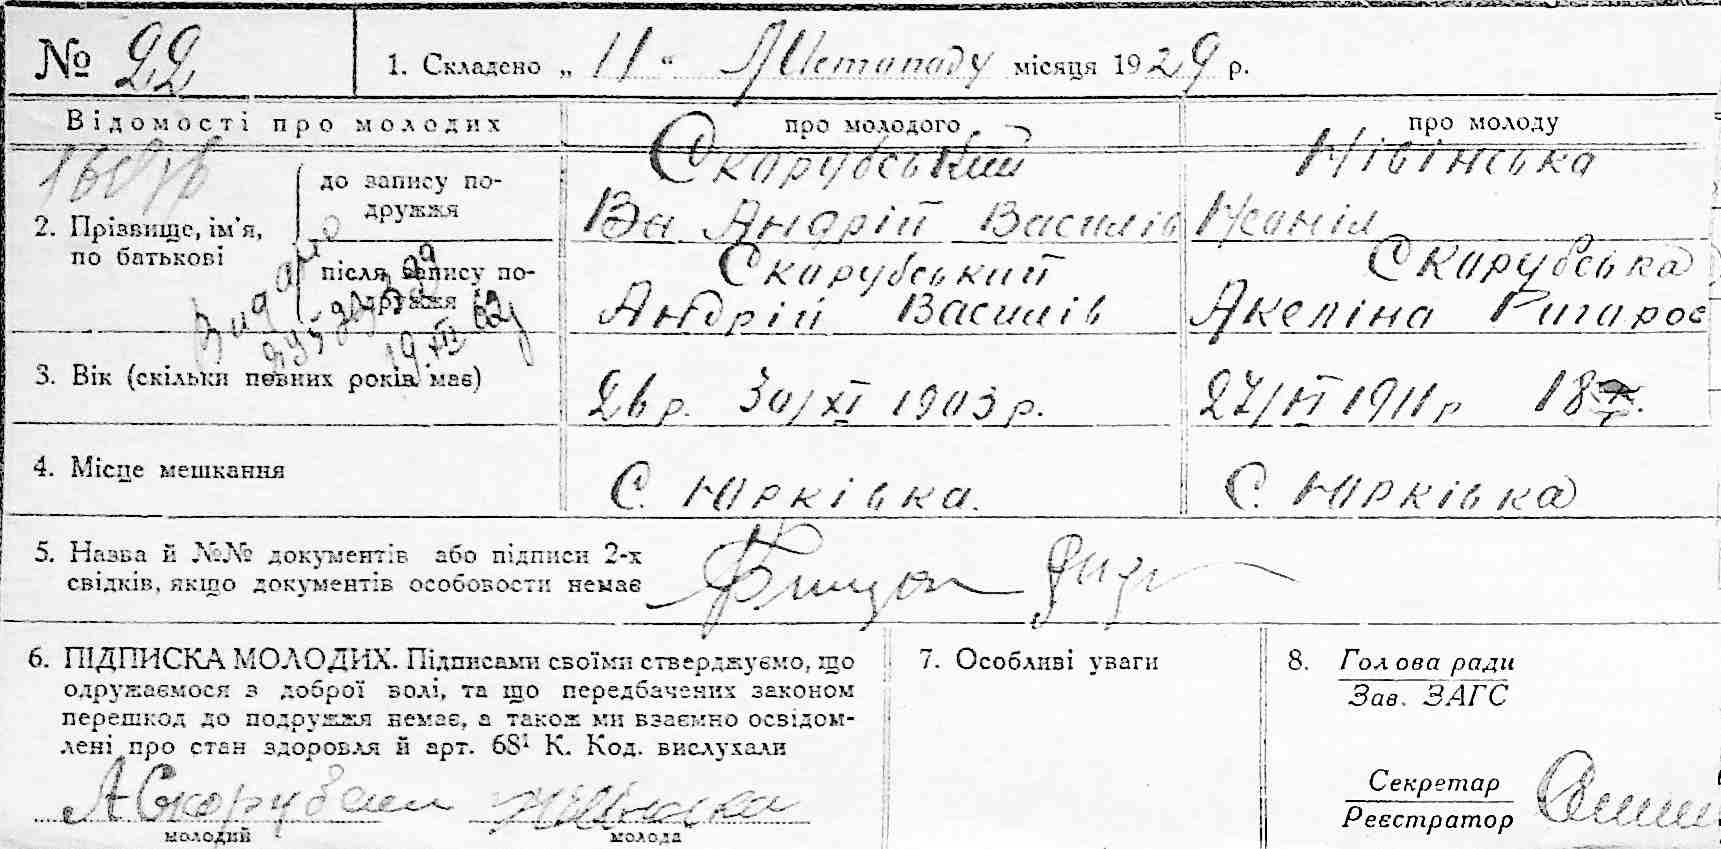 № 22
1. Складено „ 11 “ Листопаду місяця 1929 р.
Відомості про молодих
про молодого
про молоду
2. Прізвище, ім'я, по батькові
до запису по-
дружжя
Скарубський
Андрій Василів
Нівінська
після запису по-
дружжя
Скарубський
Андрій Василів
Скарубська
Акеліна
Видано
19 XII
3. Вік (скільки повних років має)
26 р. 30/XI 1903 р.
27/VI 1911 р 18
4. Місце мешкання
С. Юрківка.
С. Юрківка
5. Назва й №№ документів або підписи 2-х
свідків, якщо документів особовости немає
6. ПІДПИСКА МОЛОДИХ. Підписами своїми стверджуємо, що
одружаємося з доброї волі, та що передбачених законом
перешкод до подружжя немає, а також ми взаємно освідом-
лені про стан здоровля й арт. 68¹ К. Код. вислухали
А Скорубский
молодий
молода
7. Особливі уваги
8. Голова ради
Зав. ЗАГС
Секретар
Реєстратор